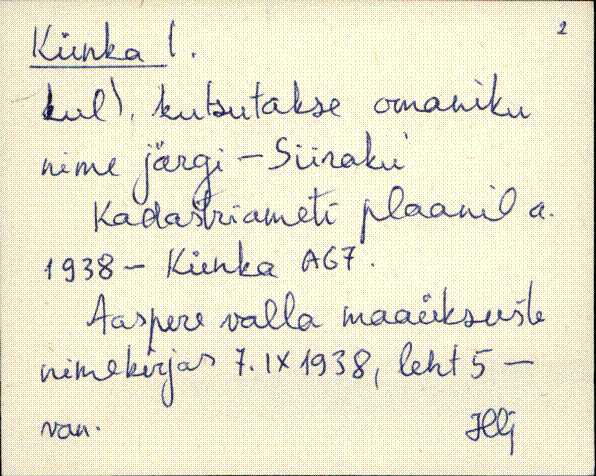 2
Künka l.
kul), kutsutakse omaniku
nime järgi – Siiraku
Kadastriameti plaanil a.
1938 – Künka A67.
Aaspere valla maaüksuste
nimekirjas 7. IX 1938, leht 5 –